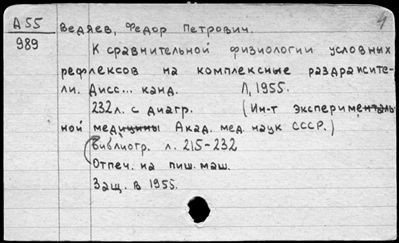 А 55
989
4
Ведяев, Федор Петрович.
К сравнительной физиологии условных
рефлексов на комплексные раздражите-
ли. Дисс... канд. Л, 1955.
232 л. с диагр. (Ин-т эксперименталь-
ной медицины Акад. мед. наук СССР.)
Библиогр. л. 215-232
Отпеч. на пиш. маш.
Защ. в 1955.